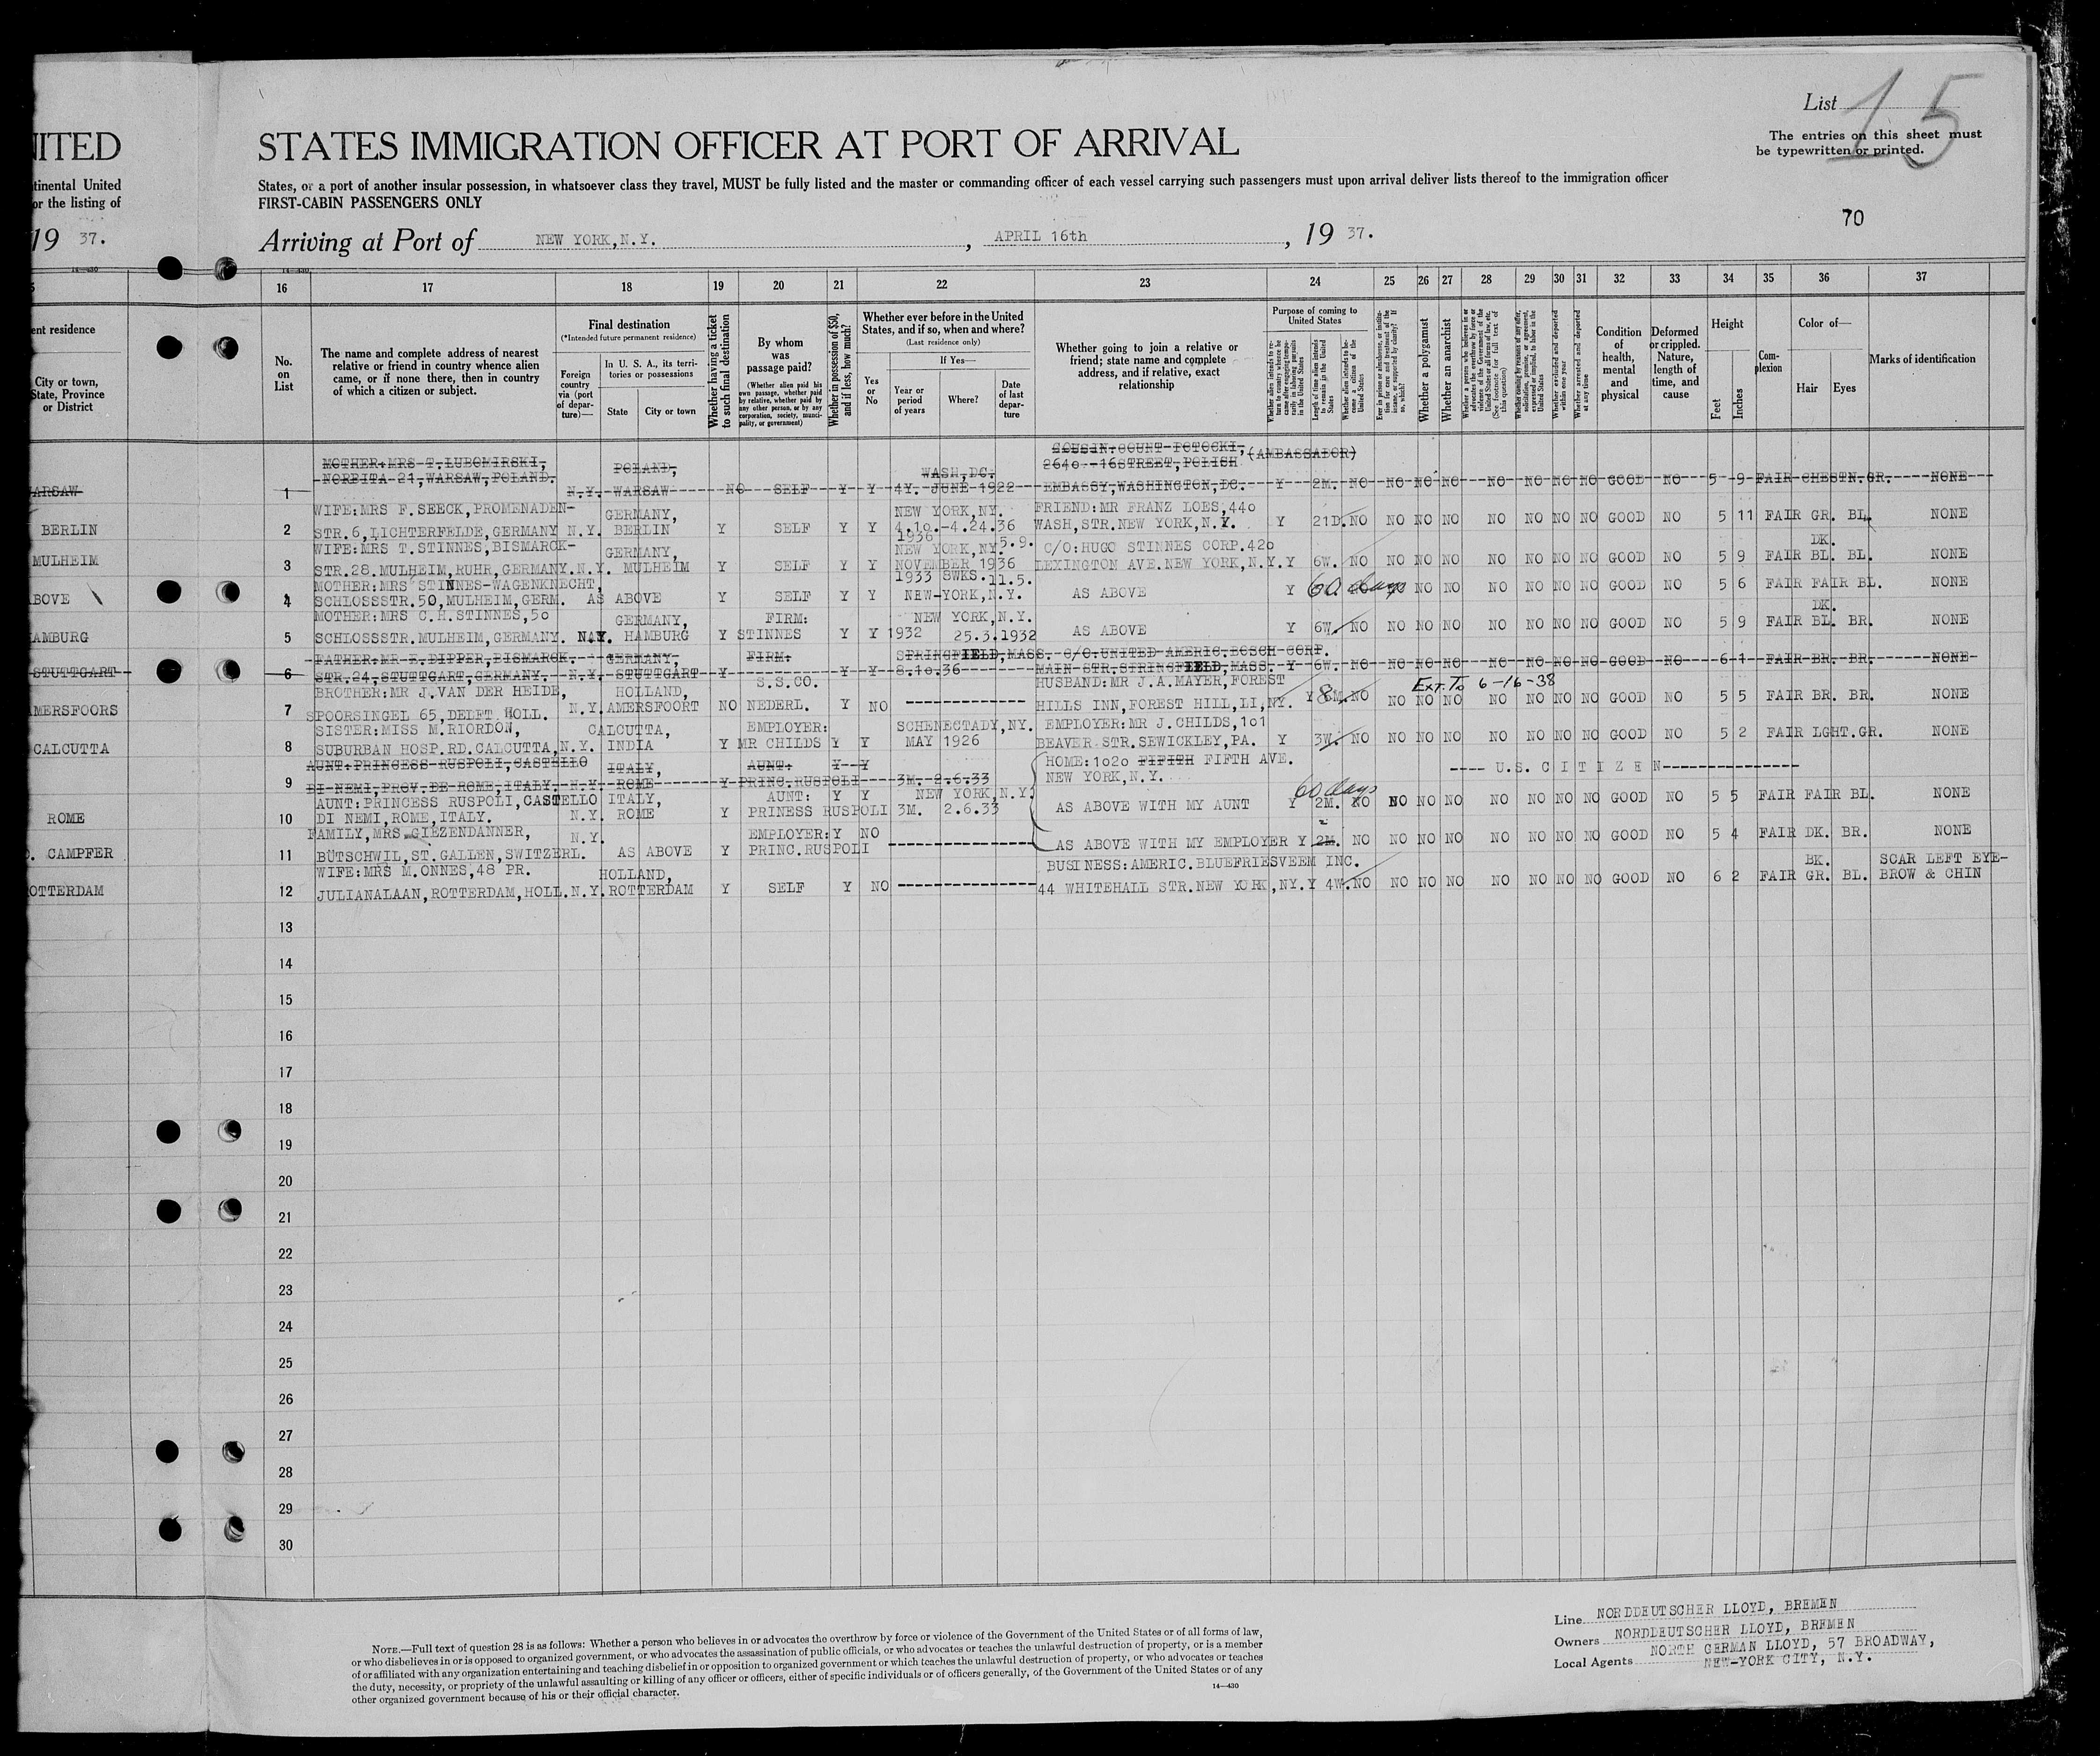 NITED
tinental United
or the listing of
19 37.
14—430
ent residence
City or town,
State, Province
or District
WARSAW
BERLIN
MULHEIM
BOVE
AMBURG
STUTTGART
AMERSFOORS
CALCUTTA
ROME
CAMPFER
OTTERDAM
List 15
The entries on this sheet must
be typewritten or printed.
STATES IMMIGRATION OFFICER AT PORT OF ARRIVAL
States, or a port of another insular possession, in whatsoever class they travel, MUST be fully listed and the master or commanding officer of each vessel carrying such passengers must upon arrival deliver lists thereof to the immigration officer
FIRST-CABIN PASSENGERS ONLY
70
Arriving at Port of NEW YORK,N.Y. , APRIL 16th , 19 37.
14—430
16 17 18 19 20 21 22 23 24 25 26 27 28 29 30 31 32 33 34 35 36 37
No.
on
List
The name and complete address of nearest
relative or friend in country whence alien
came, or if none there, then in country
of which a citizen or subject.
Final destination
(*Intended future permanent residence)
Foreign
country
via (port
of depar-
ture)—
In U. S. A., its terri-
tories or possessions
State
City or town
Whether having a ticket
to such final destination
By whom
was
passage paid?
(Whether alien paid his
own passage, whether paid
by relative, whether paid by
any other person, or by any
corporation, society, munici-
pality, or government)
Whether in possession of $50,
and if less, how much?
Whether ever before in the United
States, and if so, when and where?
(Last residence only)
If Yes—
Yes
or
No
Year or
period
of years
Where?
Date
of last
depar-
ture
Whether going to join a relative or
friend; state name and complete
address, and if relative, exact
relationship
Purpose of coming to
United States
Whether alien intends to re-
turn to country whence he
came after engaging tempo-
rarily in laboring pursuits
in the United States
Length of time alien intends
to remain in the United
States
Whether alien intends to be-
come a citizen of the
United States
Ever in prison or almshouse, or institu-
tion for care and treatment of the
insane, or supported by charity? If
so, which?
Whether a polygamist
Whether an anarchist
Whether a person who believes in or
advocates the overthrow by force or
violence of the Government of the
United States or all forms of law, etc.
(See footnote for full text of
this question)
Whether coming by reasons of any offer,
solicitation, promise, or agreement,
expressed or implied, to labor in the
United States
Whether excluded and deported
within one year
Whether arrested and deported
at any time
Condition
of
health,
mental
and
physical
Deformed
or crippled.
Nature,
length of
time, and
cause
Height
Feet
Inches
Com-
plexion
Color of—
Hair Eyes
Marks of identification
MOTHER:MRS T.LUBOMIRSKI, POLAND, WASH,DC. COUSIN:COUNT POTOCKI, (AMBASSADOR)
NORBITA 21,WARSAW,POLAND. 2640 -16STREET,POLISH
1 N.Y. WARSAW NO SELF Y Y 4Y. JUNE 1922 EMBASSY,WASHINGTON,DC. Y 2M. NO NO NO NO NO NO NO NO GOOD NO 5 9 FAIR CHESTN.GR. NONE
WIFE:MRS F.SEECK,PROMENADEN- GERMANY, NEW YORK,NY. FRIEND:MR FRANZ LOES,440
2 STR.6,LICHTERFELDE,GERMANY N.Y. BERLIN Y SELF Y Y 4.10.-4.24.36 WASH,STR.NEW YORK,N.Y. Y 21D.NO NO NO NO NO NO NO NO GOOD NO 5 11 FAIR GR. BL. NONE
WIFE:MRS T.STINNES,BISMARCK- GERMANY, 1936 NEW YORK,NY. 5.9. C/O:HUGO STINNES CORP.420 DK.
3 STR.28.MULHEIM,RUHR,GERMANY.N.Y. MULHEIM Y SELF Y Y NOVEMBER 1936 LEXINGTON AVE.NEW YORK,N.Y. Y 6W. NO NO NO NO NO NO NO NO GOOD NO 5 9 FAIR BL. BL. NONE
MOTHER:MRS STINNES-WAGENKNECHT, 1933 SWKS. 11.5.
4 SCHLOSSSTR.50,MULHEIM,GERM. AS ABOVE Y SELF Y Y NEW-YORK,N.Y. AS ABOVE Y 60 days NO NO NO NO NO NO GOOD NO 5 6 FAIR FAIR BL. NONE
MOTHER:MRS C.H.STINNES,50 GERMANY, FIRM: NEW YORK,N.Y. DK.
5 SCHLOSSSTR.MULHEIM,GERMANY. N.Y. HAMBURG Y STINNES Y Y 1932 25.3.1932 AS ABOVE Y 6W. NO NO NO NO NO NO NO NO GOOD NO 5 9 FAIR BL. BR. NONE
FATHER:MR E.DIPPER,BISMARCK. GERMANY, FIRM. SPRINGFIELD,MASS. C/O.UNITED AMERIC.BOSCH CORP.
6 STR.24,STUTTGART,GERMANY. N.Y. STUTTGART Y Y Y 8.10.36 MAIN STR.STRINGFIELD,MASS. Y 6W. NO NO NO NO NO NO NO NO GOOD NO 6 1 FAIR BR. BR. NONE
BROTHER:MR J.VAN DER HEIDE, HOLLAND, S.S.CO. HUSBAND:MR J.A.MAYER,FOREST Ext. To 6-16-38
7 SPOORSINGEL 65,DELFT HOLL. N.Y.AMERSFOORT NO NEDERL. Y NO HILLS INN,FOREST HILL,LI,NY. Y 8M.NO NO NO NO NO NO NO NO GOOD NO 5 5 FAIR BR. BR. NONE
SISTER:MISS M.RIORDON, CALCUTTA, EMPLOYER: SCHENECTADY,NY. EMPLOYER:MR J.CHILDS,101
8 SUBURBAN HOSP.RD.CALCUTTA,N.Y. INDIA Y MR CHILDS Y Y MAY 1926 BEAVER STR.SEWICKLEY,PA. Y 3W. NO NO NO NO NO NO NO NO GOOD NO 5 2 FAIR LGHT.GR. NONE
AUNT:PRINCESS RUSPOLI,CASTELLO ITALY, AUNT: Y Y HOME:1020 FIFITH FIFTH AVE. ---- U.S. C I T I Z E N
9 DI NEMI,PROV.DE ROME,ITALY. N.Y. ROME Y PRINC.RUSPOLI 3M. 2.6.33 NEW YORK,N.Y.
AUNT:PRINCESS RUSPOLI,CASTELLO ITALY, AUNT: Y Y NEW YORK,N.Y. 60 days
10 DI NEMI,ROME,ITALY. N.Y. ROME Y PRINESS RUSPOLI 3M. 2.6.33 AS ABOVE WITH MY AUNT Y 2M. NO NO NO NO NO NO NO NO GOOD NO 5 5 FAIR FAIR BL. NONE
FAMILY,MRS GIEZENDANNER, N.Y. EMPLOYER:Y NO
11 BÜTSCHWIL,ST.GALLEN,SWITZERL. AS ABOVE Y PRINC.RUSPOLI AS ABOVE WITH MY EMPLOYER Y 2M. NO NO NO NO NO NO NO NO GOOD NO 5 4 FAIR DK. BR. NONE
WIFE:MRS M.ONNES,48 PR. HOLLAND, BUSINESS:AMERIC.BLUEFRIESVEEM INC. BK. SCAR LEFT EYE-
12 JULIANALAAN,ROTTERDAM,HOLL.N.Y.ROTTERDAM Y SELF Y NO 44 WHITEHALL STR.NEW YORK,NY.Y 4W.NO NO NO NO NO NO NO NO GOOD NO 6 2 FAIR GR. BL. BROW & CHIN
13
14
15
16
17
18
19
20
21
22
23
24
25
26
27
28
29
30
NOTE.—Full text of question 28 is as follows: Whether a person who believes in or advocates the overthrow by force or violence of the Government of the United States or of all forms of law,
or who disbelieves in or is opposed to organized government, or who advocates the assassination of public officials, or who advocates or teaches the unlawful destruction of property, or is a member
of or affiliated with any organization entertaining and teaching disbelief in or opposition to organized government or which teaches the unlawful destruction of property, or who advocates or teaches
the duty, necessity, or propriety of the unlawful assaulting or killing of any officer or officers, either of specific individuals or of officers generally, of the Government of the United States or of any
other organized government because of his or their official character.
14—430
Line NORDDEUTSCHER LLOYD, BREMEN
Owners NORDDEUTSCHER LLOYD, BREMEN
Local Agents NORTH GERMAN LLOYD, 57 BROADWAY,
NEW-YORK CITY, N.Y.